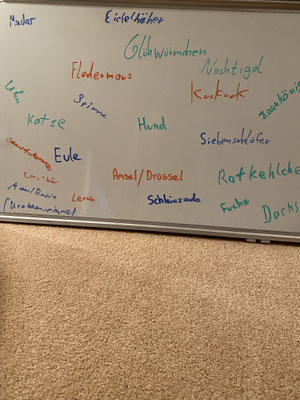 Marder
Eichelhäher
Glühwürmchen
Nachtigal
Fledermaus
Kuckuck
Uhu
Spinne
Zaunköni
Katze
Hund
Siebenschläfer
Eule
Amsel/Drossel
Rotkehlche
Lerche
Schleiereule
Fuchs
Dachs